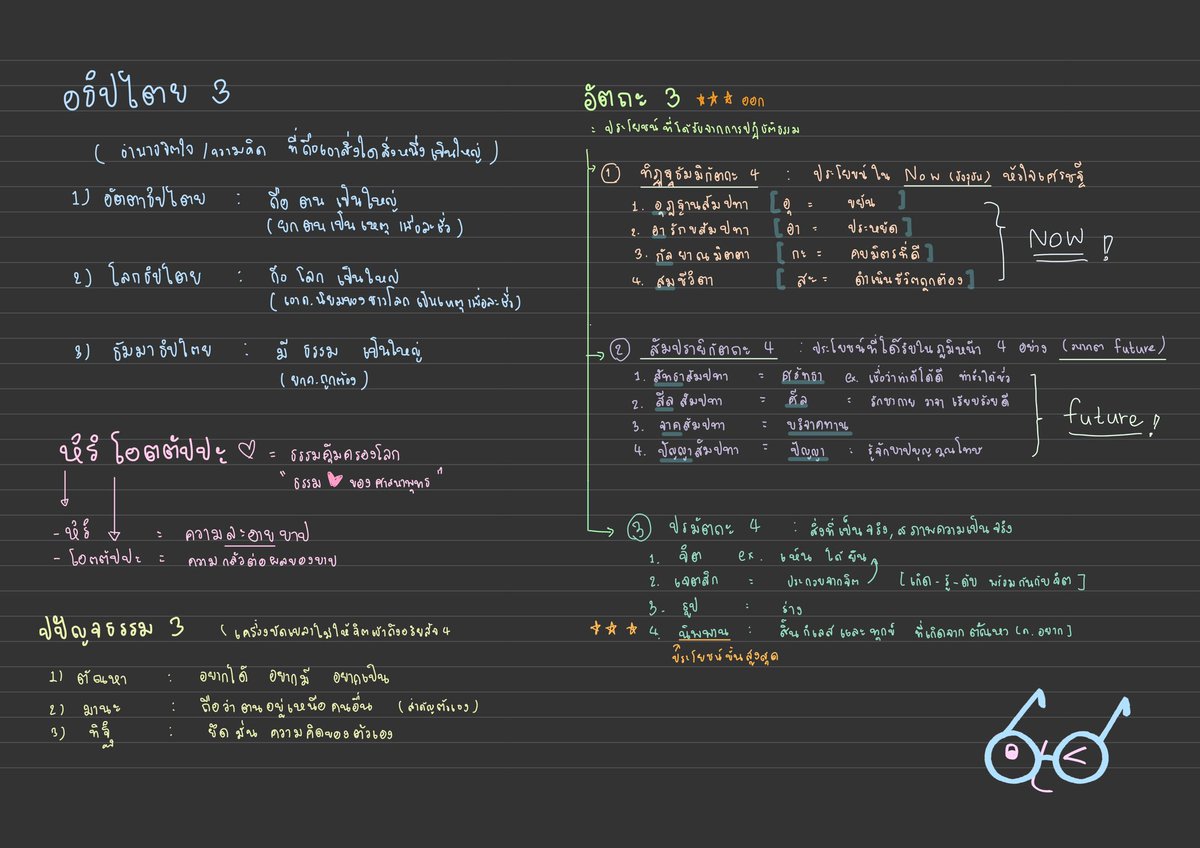 อธิปไตย 3
( อำนาจจิตใจ / ความคิด ที่ถือเอาสิ่งใดสิ่งหนึ่งเป็นใหญ่ )
1) อัตตาธิปไตย : ถือ ตน เป็นใหญ่
( ยกตนเป็นเหตุ เพื่อละชั่ว )
2) โลกาธิปไตย : ถือ โลก เป็นใหญ่
( เอาค.นิยมของชาวโลก เป็นเหตุ เพื่อละชั่ว )
3) ธัมมาธิปไตย : มี ธรรม เป็นใหญ่
( ยกค.ถูกต้อง )
หิริ โอตตัปปะ ♡ = ธรรมคุ้มครองโลก
" ธรรม ♥ ของศาสนาพุทธ "
- หิริ = ความละอายบาป
- โอตตัปปะ = ความกลัวต่อผลของบาป
ปปัญจธรรม 3 ( เครื่องขัดเขลาไม่ให้จิตเข้าถึงอริยสัจ 4
1) ตัณหา : อยากได้ อยากมี อยากเป็น
2) มานะ : ถือว่าตนอยู่เหนือคนอื่น ( สำคัญตัวเอง )
3) ทิฏฐิ : ยึดมั่น ความคิดของตัวเอง
อัตถะ 3 ☆☆☆ ออก
= ประโยชน์ที่ได้รับจากการปฏิบัติธรรม
① ทิฏฐธัมมิกัตถะ 4 : ประโยชน์ใน Now (ปัจจุบัน) หัวใจเศรษฐี
1. อุฏฐานสัมปทา [ อุ = ขยัน ]
2. อารักขสัมปทา [ อา = ประหยัด ]
3. กัลยาณมิตตา [ กะ = คบมิตรที่ดี ]
4. สมชีวิตา [ สะ = ดำเนินชีวิตถูกต้อง ]
NOW !
② สัมปรายิกัตถะ 4 : ประโยชน์ที่ได้รับในภูมิหน้า 4 อย่าง ( อนาคต future )
1. สัทธาสัมปทา = ศรัทธา ex. เชื่อว่าทำดีได้ดี ทำชั่วได้ชั่ว
2. สีลสัมปทา = ศีล : รักษากาย วาจา เรียบร้อยดี
3. จาคสัมปทา = บริจาคทาน
4. ปัญญาสัมปทา = ปัญญา : รู้จักบาปบุญคุณโทษ
future !
③ ปรมัตถะ 4 : สิ่งที่เป็นจริง, สภาพความเป็นจริง
1. จิต ex. เห็น ได้ยิน
2. เจตสิก = ประกอบจากจิต [ เกิด - รู้ - ดับ พร้อมกันกับจิต ]
3. รูป : ร่าง
☆☆☆ 4. นิพพาน : สิ้นกิเลส และ ทุกข์ ที่เกิดจาก ตัณหา [ค. อยาก]
ประโยชน์ขั้นสูงสุด